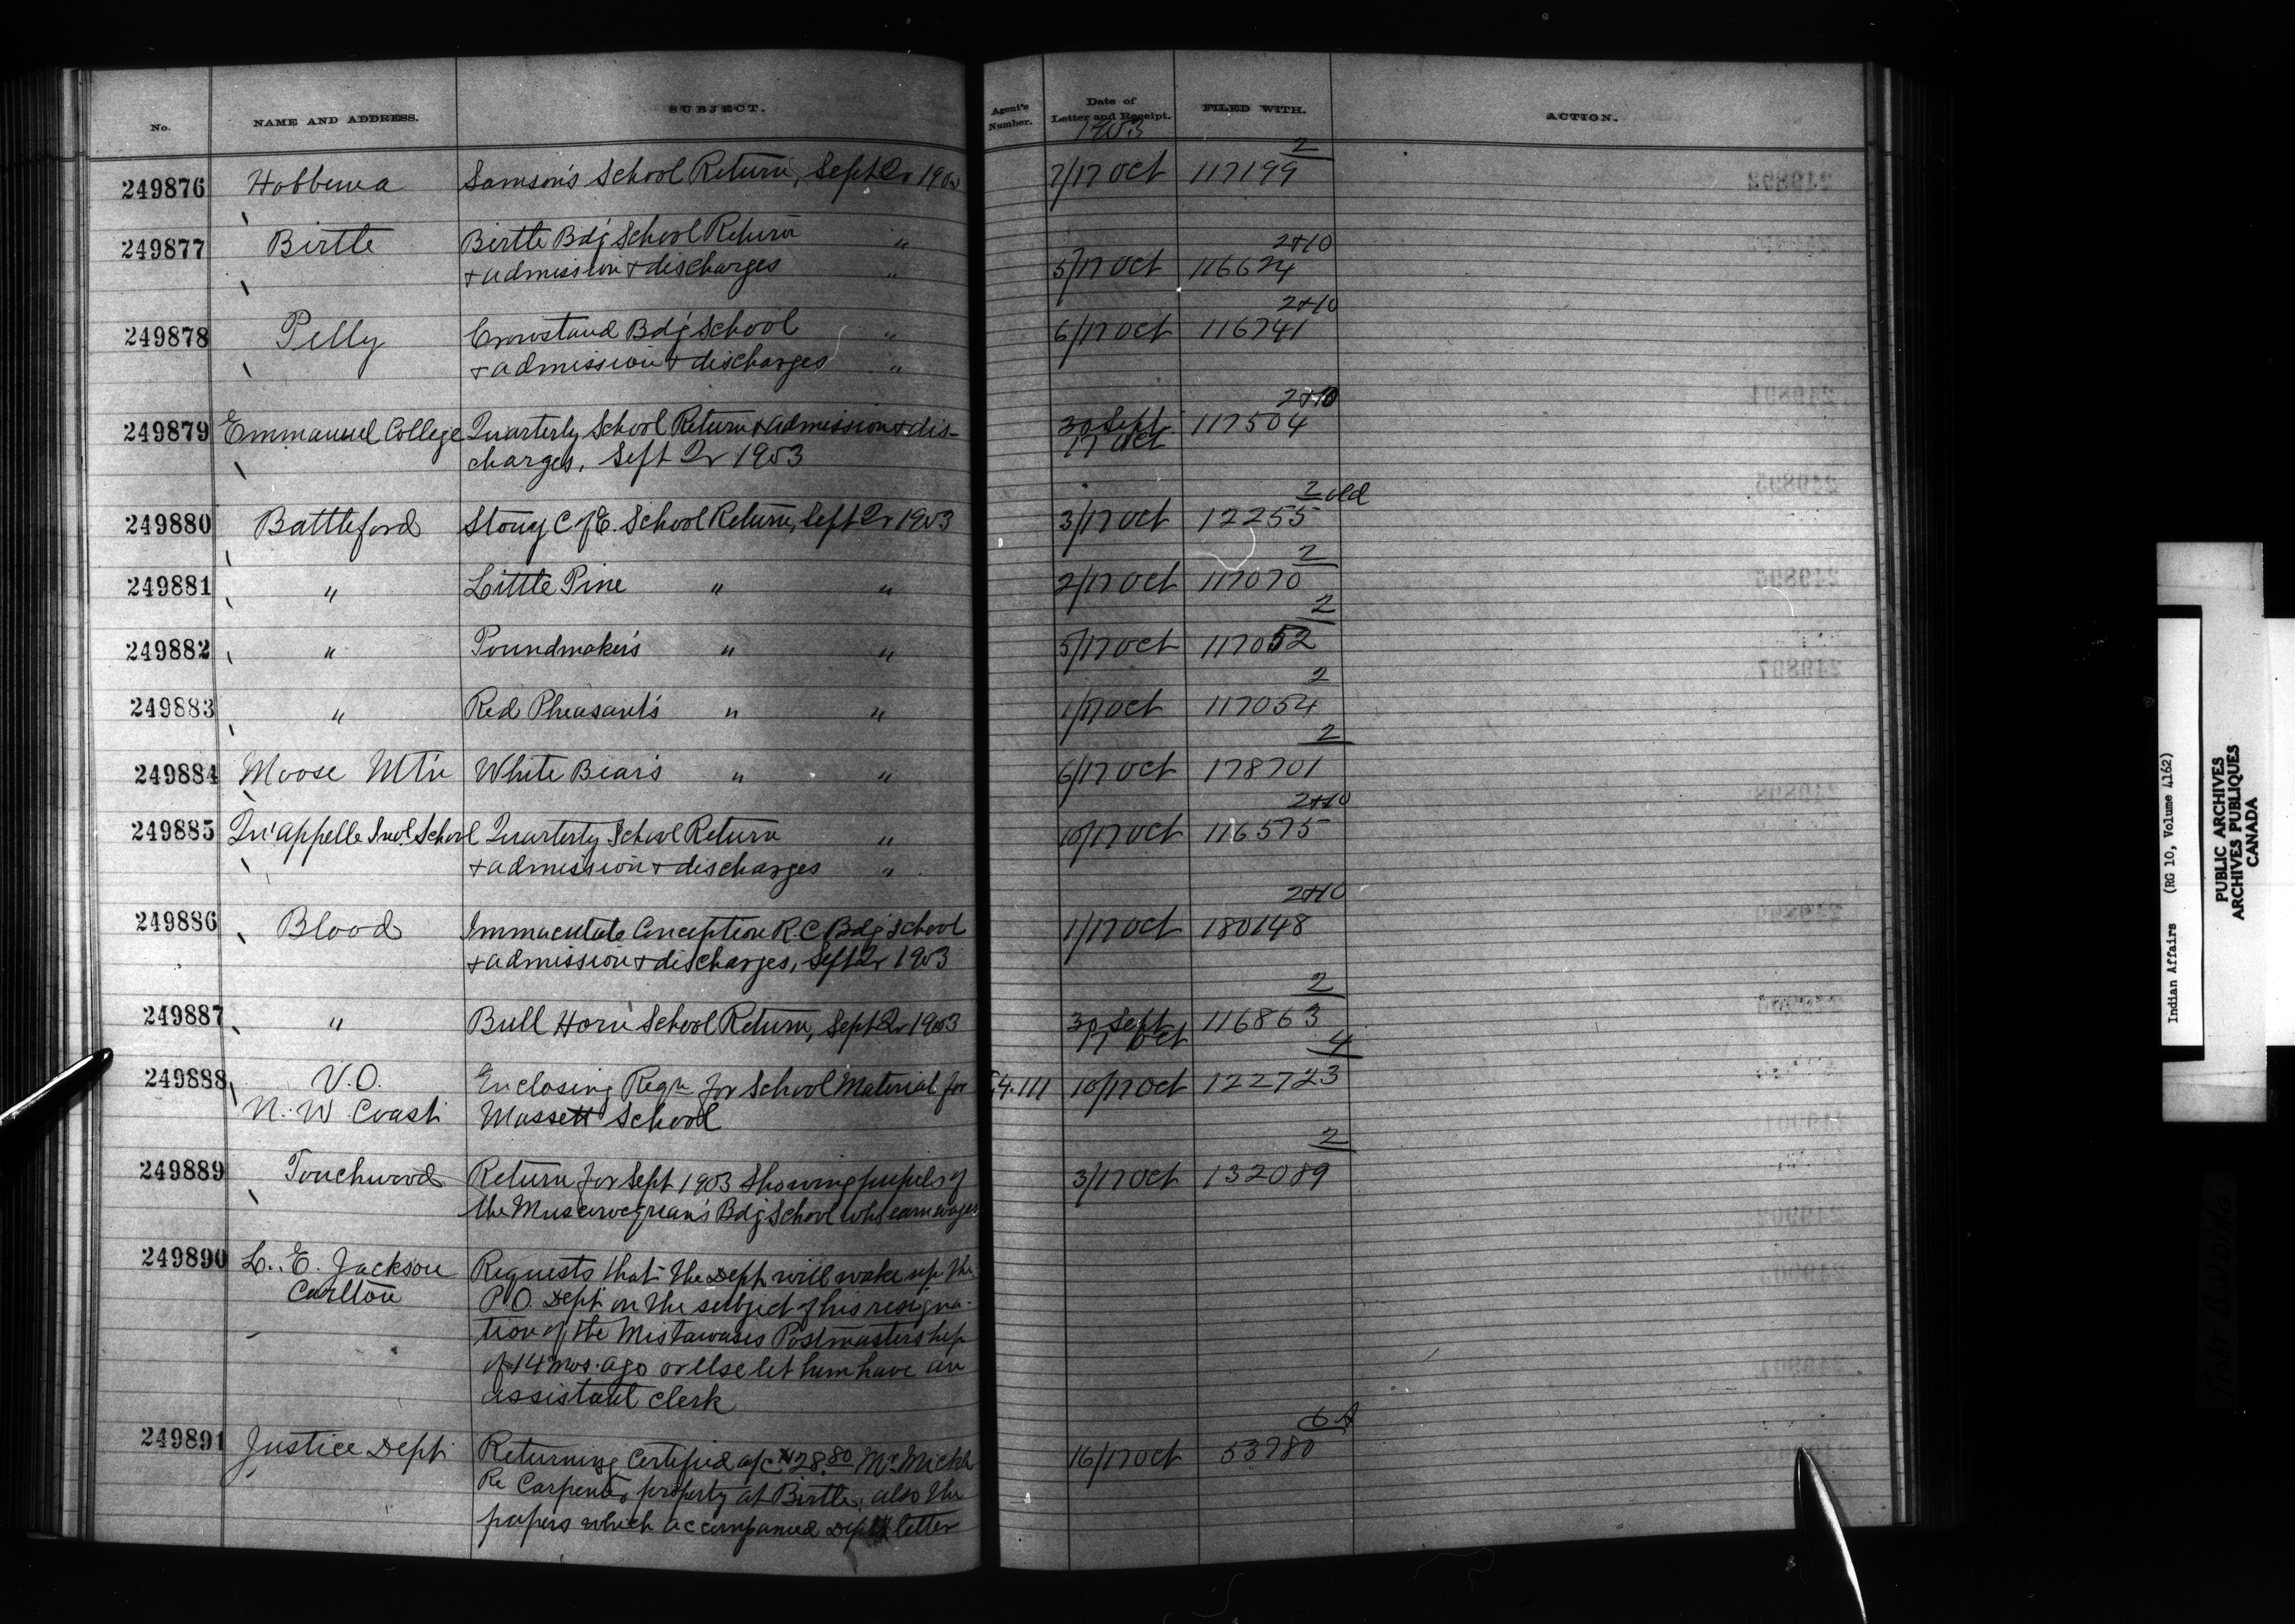 No. NAME AND ADDRESS. SUBJECT. Agent's Number. Date of Letter and Receipt. FILED WITH. ACTION.
1903
249876 Hobbema Samson's School Return, Sept Qr 1903 7/17 Oct 117199 2
249877 Birtle Birtle Bdg School Return "
+ admission + discharges " 5/17 Oct 116624 2+10
249878 Pelly Crowstand Bdg School "
+ admission + discharges " 6/17 Oct 116741 2+10
249879 Emmanuel College Quarterly School Return + admission + dis-
charges, Sept Qr 1903 30 Sept 17 Oct 117504 2+10
249880 Battleford Stony C of E. School Return, Sept Qr 1903 3/17 Oct 12255 2 old
249881 " Little Pine " " 2/17 Oct 117070 2
249882 " Poundmaker's " " 5/17 Oct 117052 2
249883 " Red Pheasant's " " 1/17 Oct 117054 2
249884 Moose Mt'n White Bear's " " 6/17 Oct 178701 2
249885 Qu'appelle Indl. School Quarterly School Return "
+ admission + discharges " 10/17 Oct 116575 2+10
249886 Blood Immaculate Conception R.C. Bdg School
+ admission + discharges, Sept Qr 1903 1/17 Oct 180148 2+10
249887 " Bull Horn School Return, Sept Qr 1903 30 Sept 17 Oct 116863 2
249888 V.O. Enclosing Reqn for School Material for 4.111 10/17 Oct 122723 4
N. W. Coast Massett School
249889 Touchwood Return for Sept 1903 showing pupils of 3/17 Oct 132089 2
the Muscowequan's Bdg School who earn wages
249890 L. E. Jackson Requests that the Dept will wake up the
Carlton P.O. Dept on the subject of his resigna-
tion of the Mistawasis Postmastership
of 14 mos. ago or else let him have an
assistant clerk
249891 Justice Dept Returning Certified a/c 28.80 Mr. 16/17 Oct 53780 6 A
Re Carpenter property at Birtle, also the
papers which accompanied Depts letter
Indian Affairs (RG 10, Volume 4162)
PUBLIC ARCHIVES
ARCHIVES PUBLIQUES
CANADA